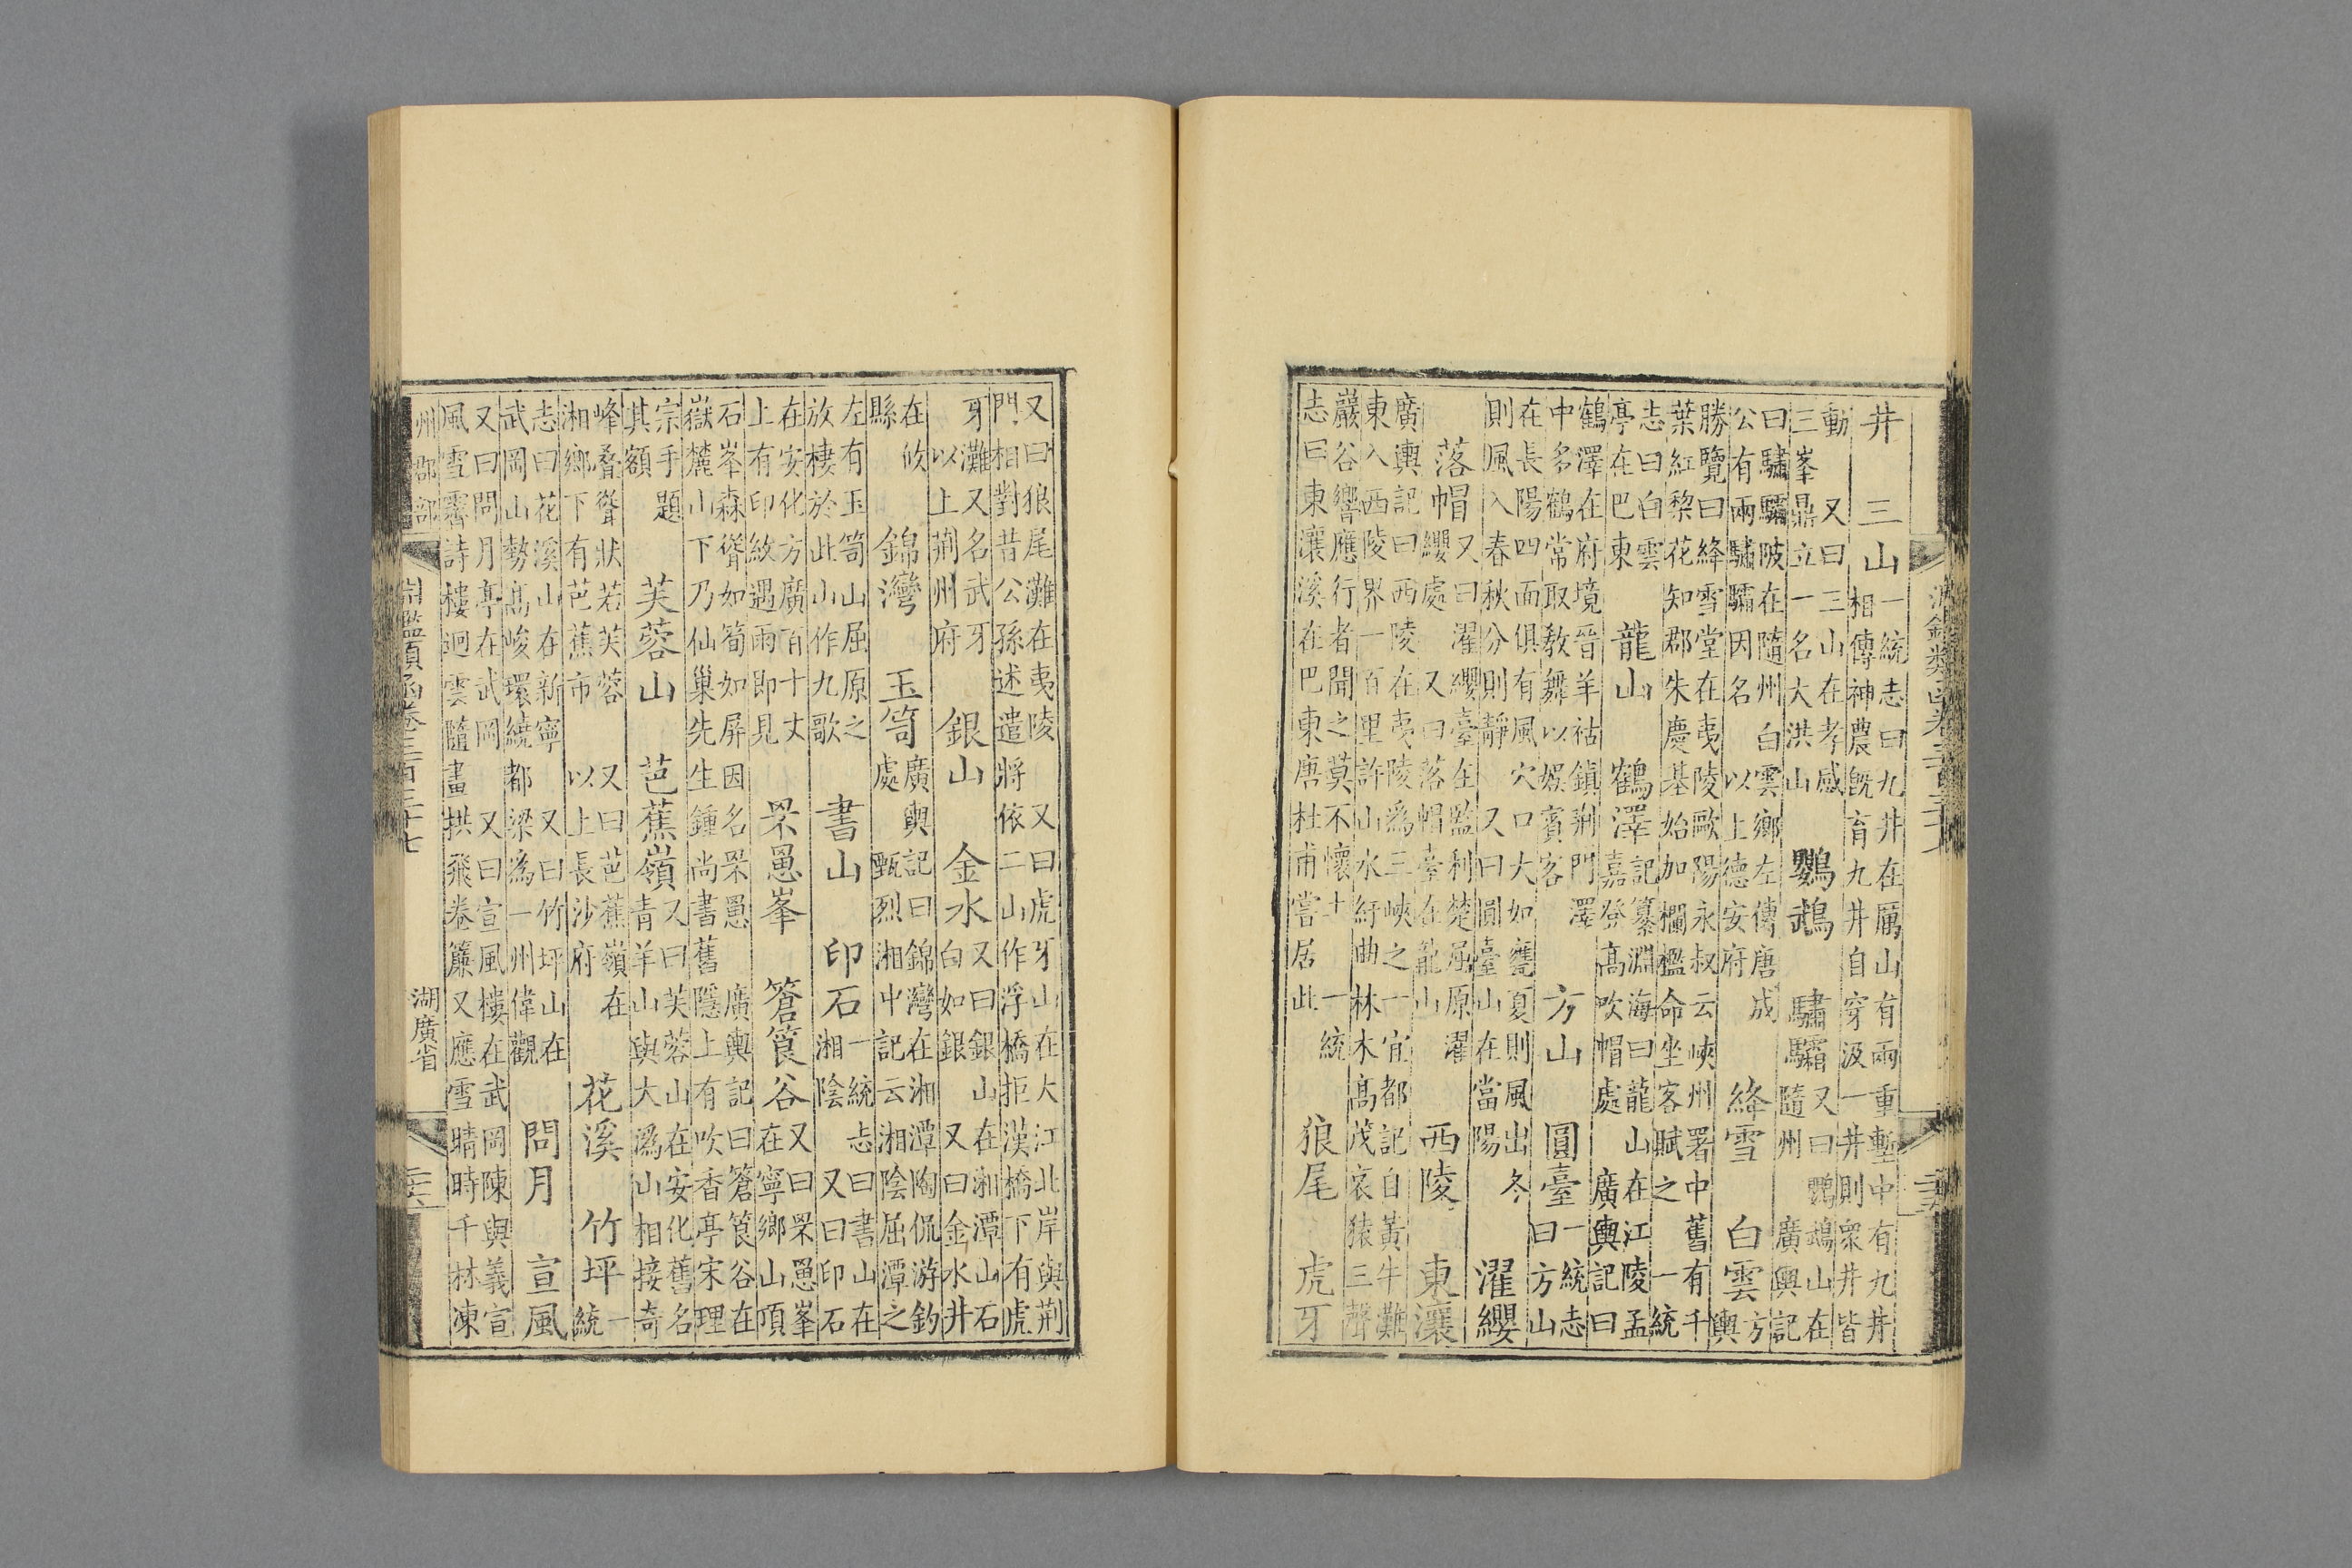 井　三山 一統志曰九井在厲山有兩重塹中有九井
相傳神農旣育九井自穿汲一井則衆井皆
動　又曰三山在孝感
三峯鼎立一名大洪山 鸚鵡　驌驦 又曰鸚鵡山在
隨州　廣輿記
曰驌驦陂在隨州　白雲鄉左傳唐成
公有兩驌驦因名　以上德安府 絳雪　白雲 方
輿
勝覽曰絳雪堂在夷陵歐陽永叔云峽州署中舊有千
葉紅黎花知郡朱慶基始加欄檻命坐客賦之　一統
志曰白雲
亭在巴東 龍山　鶴澤 記纂淵海曰龍山在江陵孟
嘉登高吹帽處　廣輿記曰
鶴澤在府境晉羊祜鎮荆門澤
中多鶴常取敎舞以娛賓客 方山　圓臺 一統志
曰方山
在長陽四面俱有風穴口大如甕夏則風出冬
則風入春秋分則靜　又曰圓臺山在當陽 濯纓
落帽 又曰濯纓臺在監利楚屈原濯
纓處　又曰落帽臺在龍山 西陵　東瀼
廣輿記曰西陵在夷陵爲三峽之一宜都記自黃牛灘
東入西陵界一百里許山水紆曲林木高茂哀猿三聲
巖谷響應行者聞之莫不懷土　一統
志曰東瀼溪在巴東唐杜甫嘗居此 狼尾　虎牙
又曰狼尾灘在夷陵　又曰虎牙山在大江北岸與荆
門相對昔公孫述遣將依二山作浮橋拒漢橋下有虎
牙灘又名武牙
以上荆州府 銀山　金水 又曰銀山在湘潭山石
白如銀　又曰金水井
在攸
縣 錦灣　玉笥 廣輿記曰錦灣在湘潭陶侃游釣
處　甄烈湘中記云湘陰屈潭之
左有玉笥山屈原之
放棲於此山作九歌 書山　印石 一統志曰書山在
湘陰　又曰印石
在安化方廣百十丈
上有印紋遇雨即見 罘罳峯　篬筤谷 又曰罘罳峯
在寧鄉山頂
石峯森聳如筍如屏因名罘罳　廣輿記曰篬筤谷在
嶽麓山下乃仙巢先生鍾尚書舊隱上有吹香亭宋理
宗手題
其額 芙蓉山　芭蕉嶺 又曰芙蓉山在安化舊名
青羊山與大潙山相接奇
峰叠聳狀若芙蓉　又曰芭蕉嶺在
湘鄉下有芭蕉市　以上長沙府 花溪　竹坪 一
統
志曰花溪山在新寧　又曰竹坪山在
武岡山勢高峻環繞都梁為一州偉觀 問月　宣風
又曰問月亭在武岡　又曰宣風樓在武岡陳與義宣
風雪霽詩樓迥雲隨畫拱飛卷簾又應雪晴時千林凍
州郡部　湖廣省